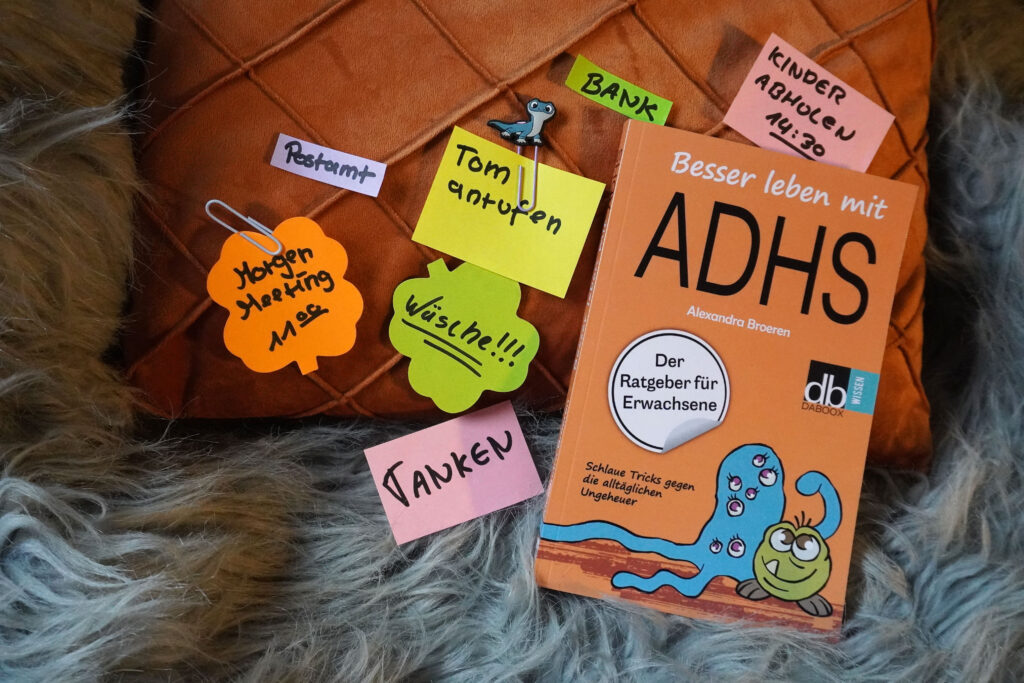 BANK
KINDER
ABHOLEN
14:30
Postamt
Tom
anrufen
Morgen
Meeting
11⁰⁰
Wäsche!!!
TANKEN
Besser leben mit
ADHS
Alexandra Broeren
Der
Ratgeber für
Erwachsene
db
DABOOX
WISSEN
Schlaue Tricks gegen
die alltäglichen
Ungeheuer